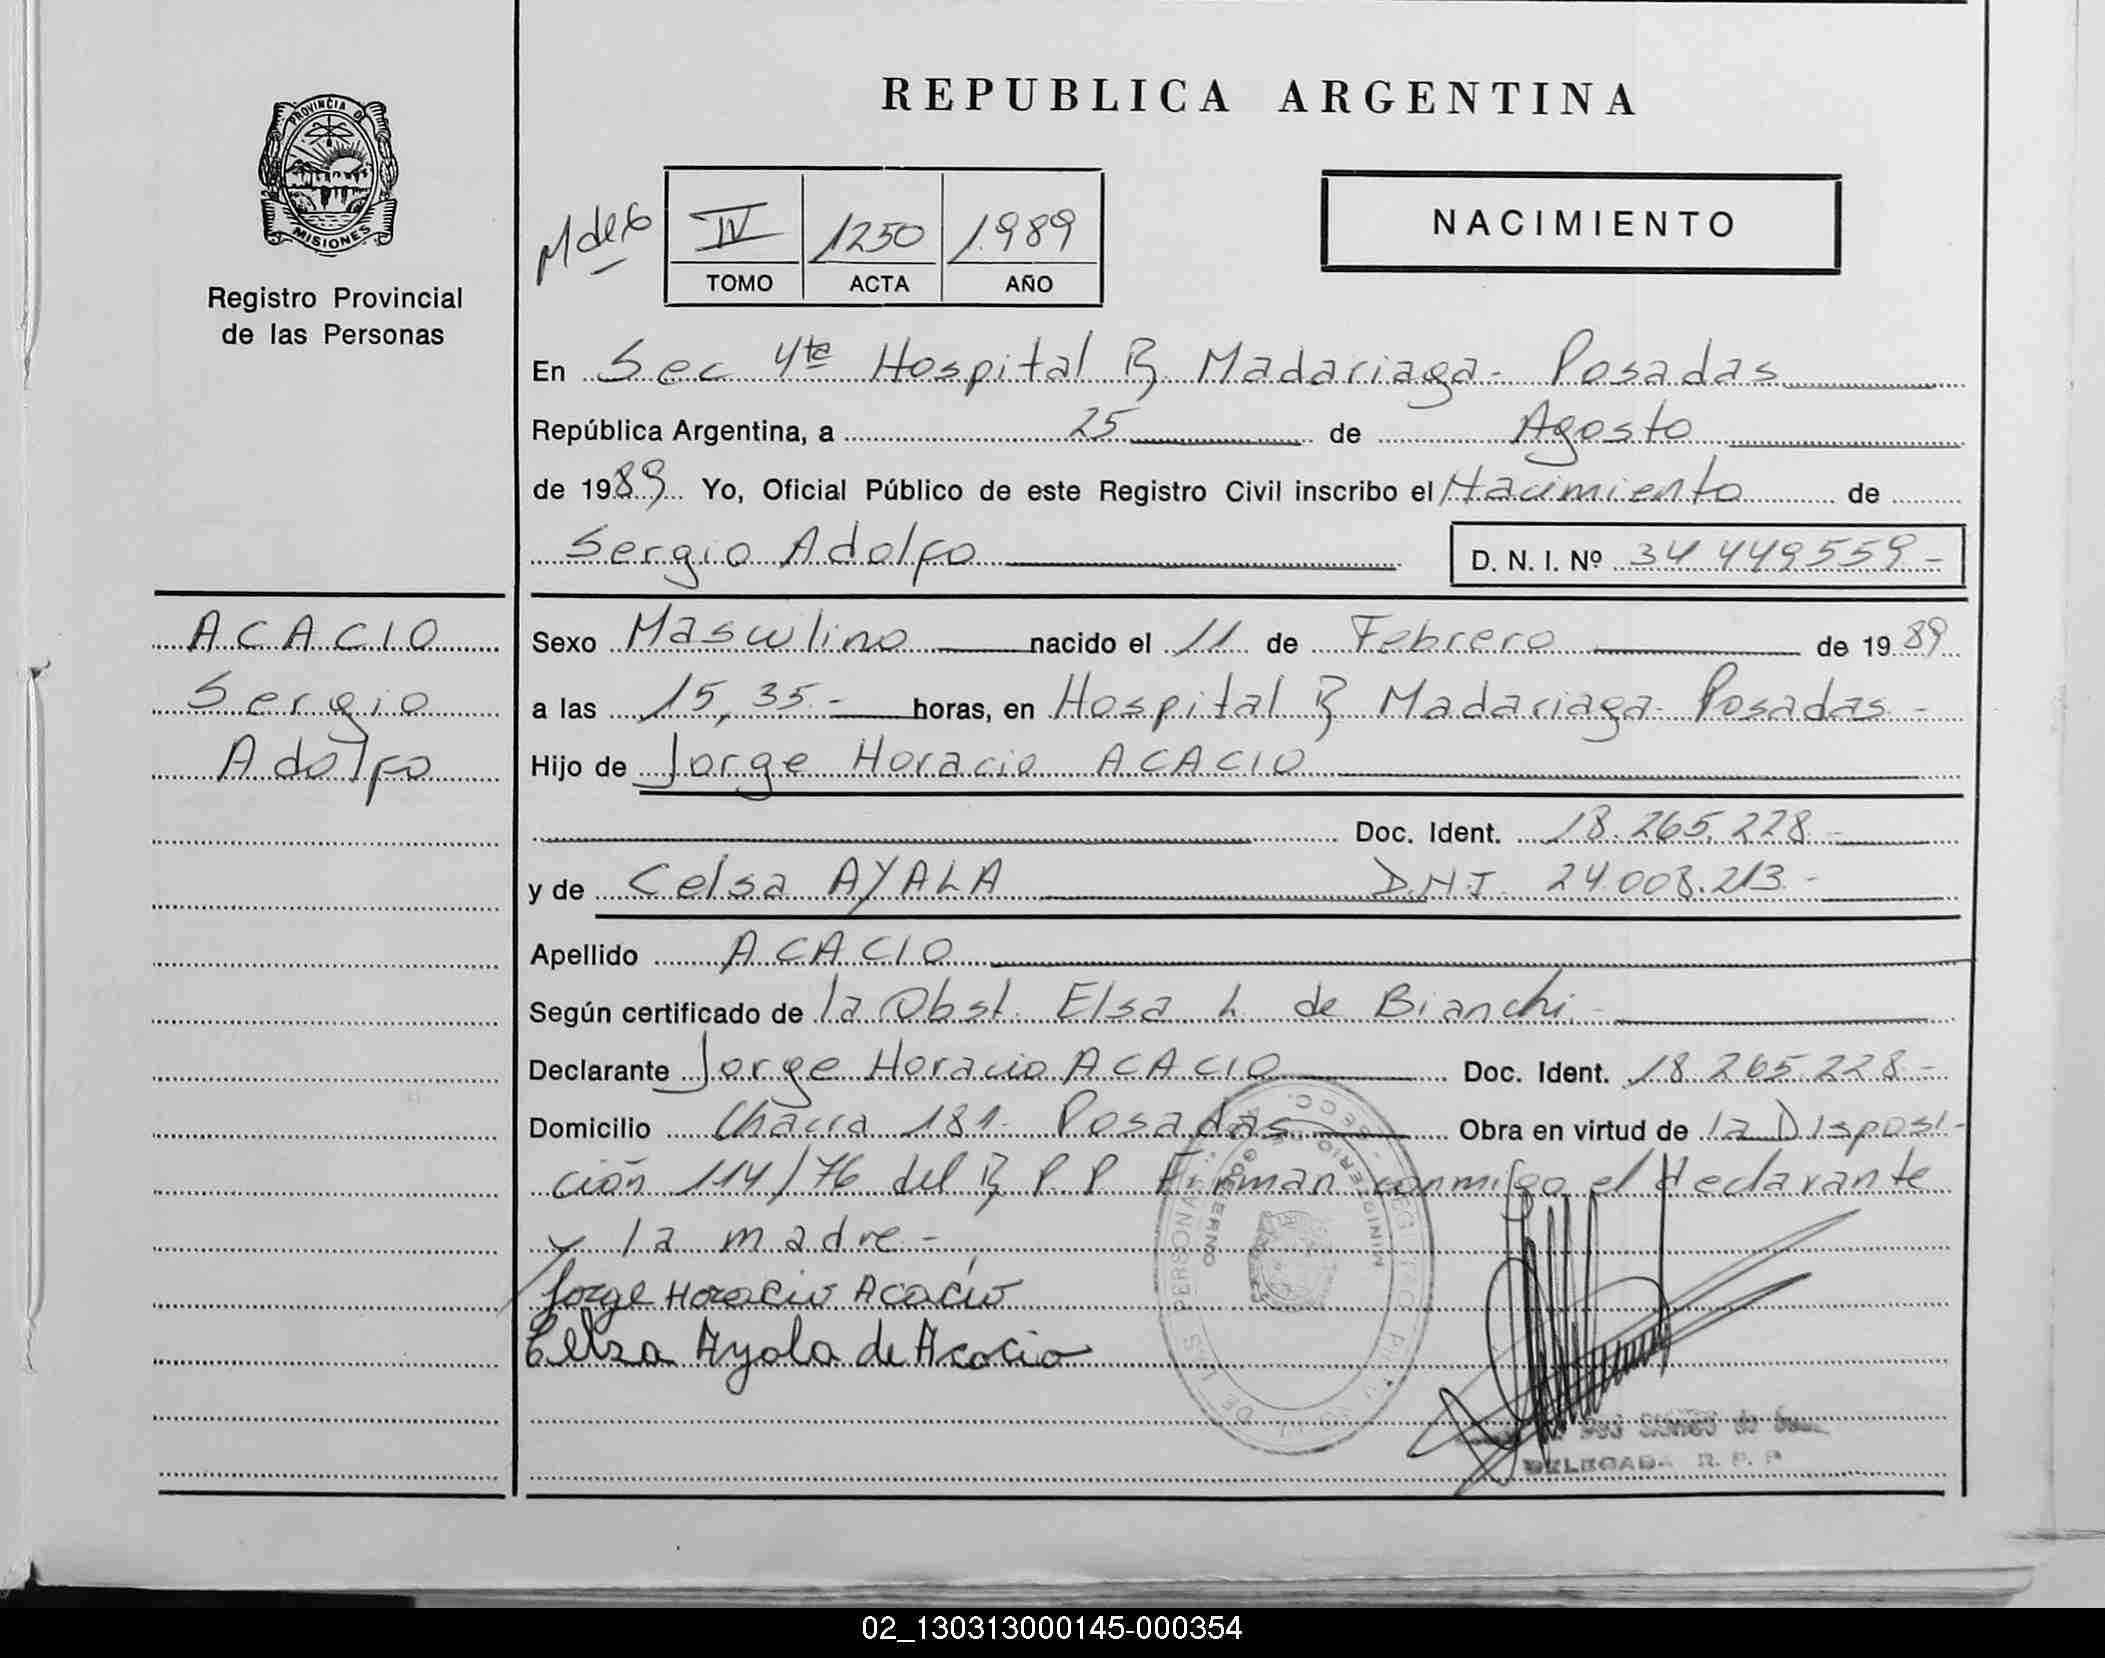 REPUBLICA ARGENTINA
PROVINCIA DE
MISIONES
Registro Provincial
de las Personas
IV 1250 1989
TOMO ACTA AÑO
NACIMIENTO
En Sec 4ta Hospital R Madariaga - Posadas
República Argentina, a 25 de Agosto
de 1989 Yo, Oficial Público de este Registro Civil inscribo el Nacimiento de
Sergio Adolfo D. N. I. Nº 34 449559 -
ACACIO
Sergio
Adolfo
Sexo Masculino nacido el 11 de Febrero de 1989
a las 15,35 - horas, en Hospital R Madariaga - Posadas -
Hijo de Jorge Horacio ACACIO
Doc. Ident. 18.265.228 -
y de Celsa AYALA D.N.I. 24.008.213 -
Apellido ACACIO
Según certificado de la Obst. Elsa L. de Bianchi -
Declarante Jorge Horacio ACACIO Doc. Ident. 18.265.228 -
Domicilio Chacra 181 - Posadas Obra en virtud de la Disposi-
ción 114/76 del R P P Firman conmigo el declarante
y la madre -
Jorge Horacio Acacio
Celsa Ayala de Acacio
MINISTERIO GOBIERNO
DE LAS PERSONAS
DELEGADA R. P. P.
02_130313000145-000354